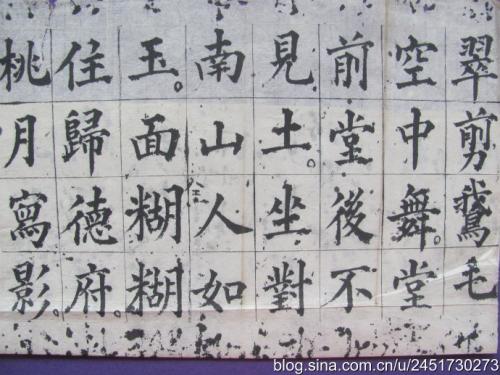 翠剪鵞毛
空中舞。堂
前堂後不
見土。坐對
南山人如
玉。面糊糊
住歸德府。
桃月寫影。
blog.sina.com.cn/u/2451730273